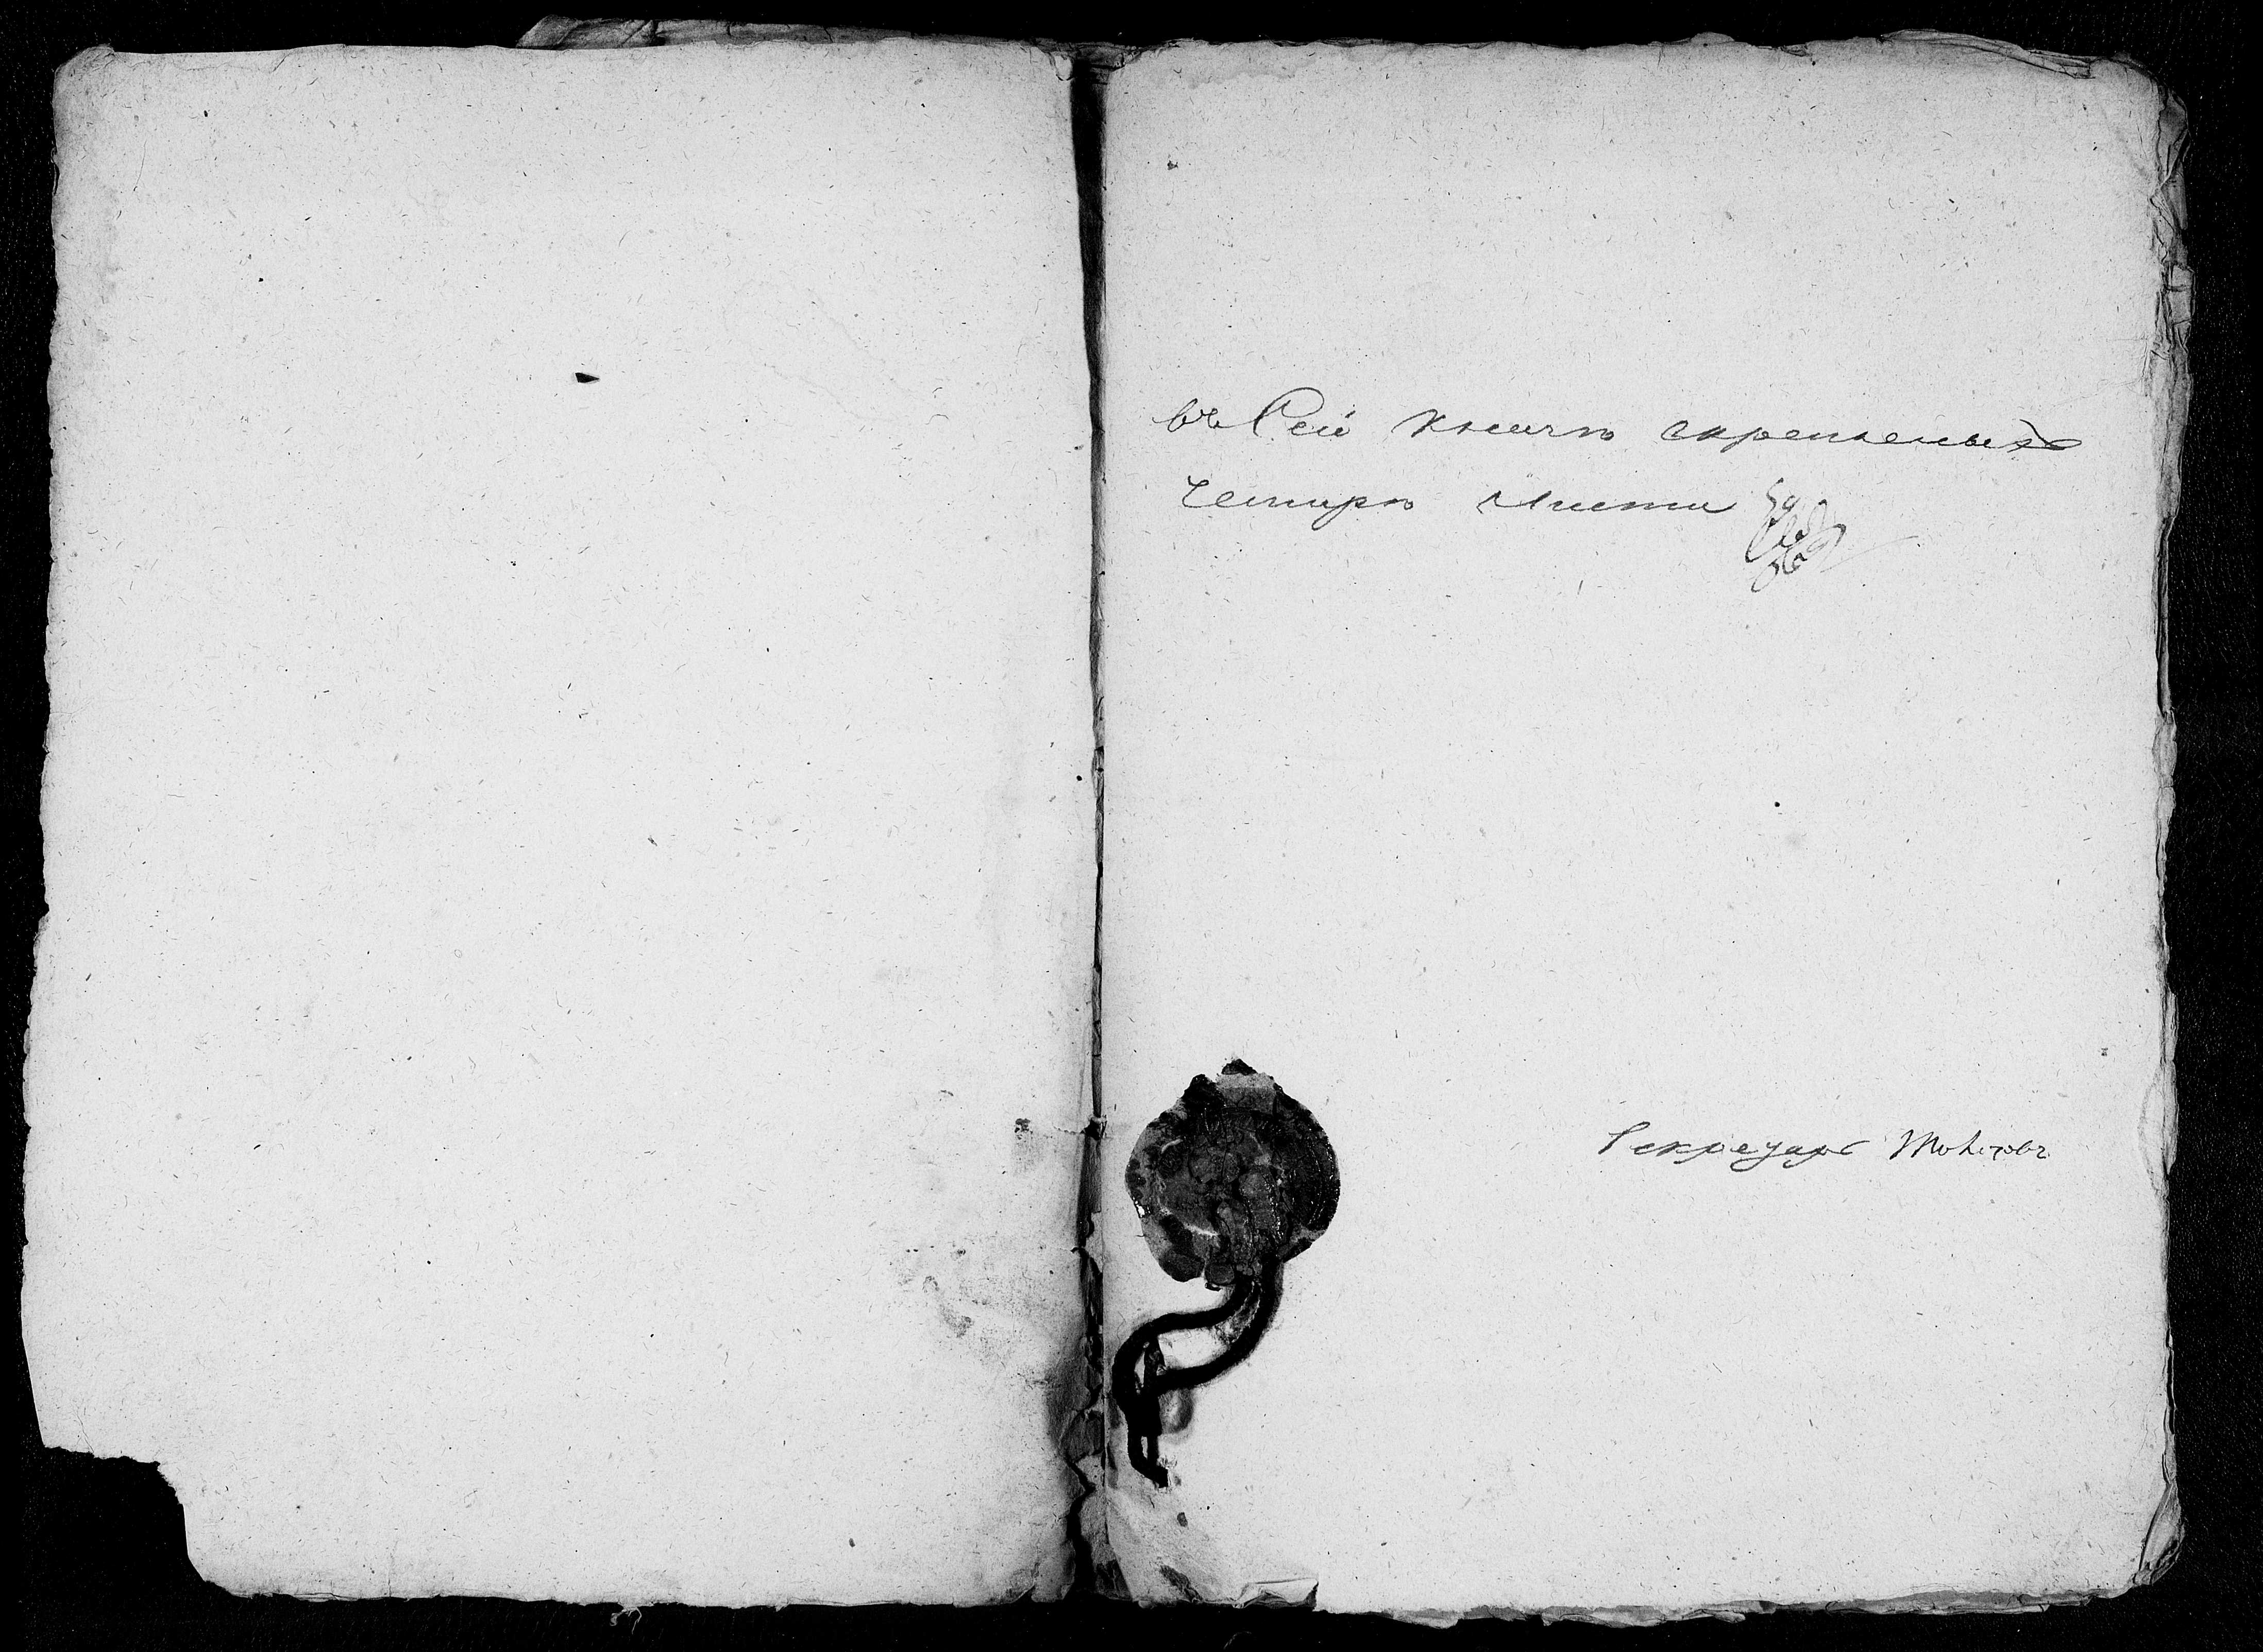 въ Сей книгѣ скрепленыхъ
Четыре листа
Секретарь